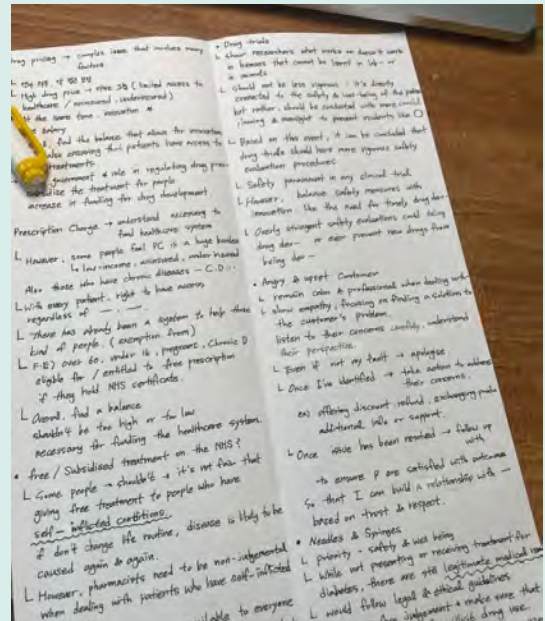 drug pricing → complex issue that involves many
factors
L High drug price → (limited access to
healthcare / uninsured, underinsured)
at the same time, innovation
find the balance that allows for innovation
also ensuring that patients have access to
treatments
government & role in regulating drug
subsidise the treatment for people
increase in funding for drug development
Prescription Charge → understand necessary to
fund healthcare system
L However, some people feel PC is a huge burden
to low-income, uninsured, under insured
Also those who have chronic diseases - C.D...
L With every patient, right to have access
regardless of
L There has already been a system to help those
kind of people. (exemption from)
L F.E) over 60, under 16, pregnant, Chronic D
eligible for / entitled to free prescription
if they hold NHS certificate.
L Overall, find a balance
shouldn't be too high or too low
necessary for funding the healthcare system.
• free / Subsidised treatment on the NHS?
L Some people → shouldn't → it's not fair that
giving free treatment to people who have
self-inflicted conditions.
if don't change life routine, disease is likely to be
caused again & again.
L However, pharmacists need to be non-judgemental
when dealing with patients who have self-inflicted
available to everyone
• Drug trials
L Show researchers what works or doesn't work
in humans that cannot be learnt in lab- or
in animals
L Should not be less rigorous : it's directly
connected to the safety & well-being of the
but rather, should be conducted with more careful
planning & oversight to prevent incidents like
L Based on this event, it can be concluded that
drug trials should have more rigorous safety
evaluation procedures
L Safety paramount in any clinical trial
L However, balance safety measures with
innovation like the need for timely drug dev-
L Overly stringent safety evaluations could delay
drug dev- or even prevent new drugs from
being dev-
• Angry & upset Customer
L remain calm & professional when dealing
L show empathy, focusing on finding a solution to
the customer's problem.
listen to their concerns carefully, understand
their perspective.
L Even if not my fault → apologise
L Once I've identified → take action to address
their concerns.
ex) offering discount, refund, exchanging
additional info or support.
L Once issue has been resolved → follow up
with
to ensure P are satisfied with outcome
So that I can build a relationship with
based on trust & respect.
• Needles & Syringes
L priority - safety & well being
L While not presenting or receiving treatment for
diabetes, there are still legitimate medical
L would follow legal & ethical guidelines
judgement & make sure that
drug use.